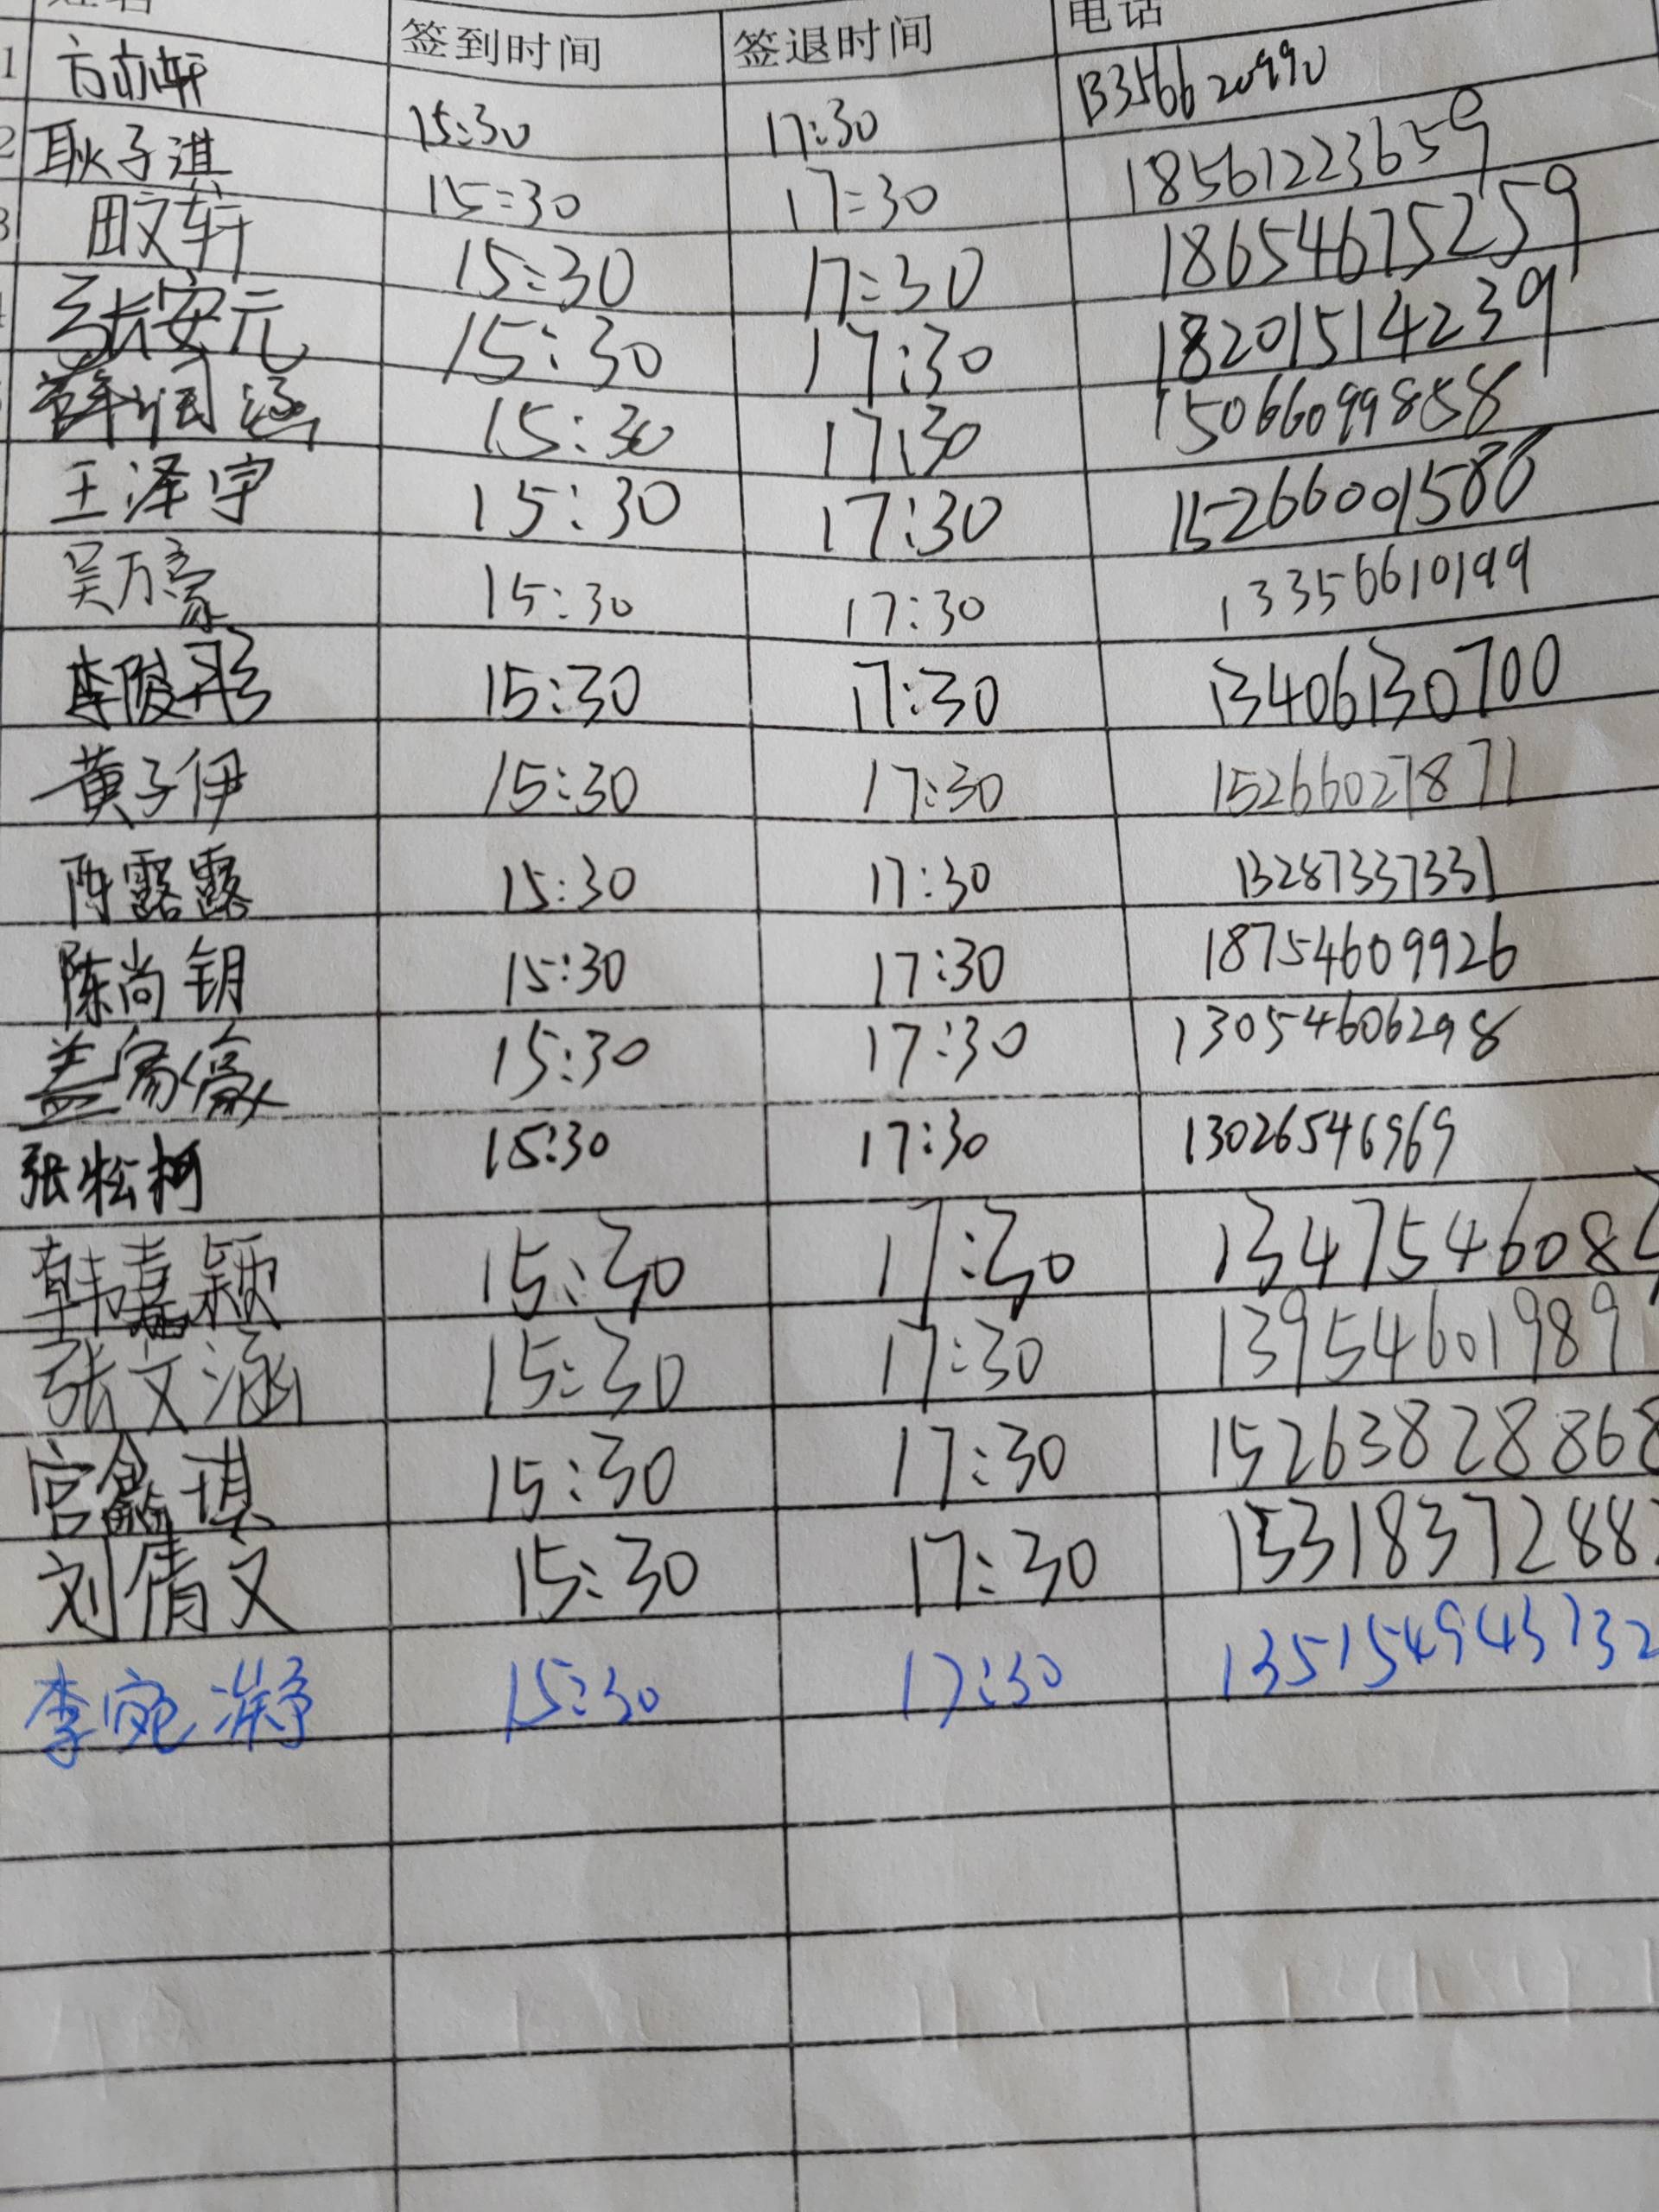 姓名 签到时间 签退时间 电话
1 方亦轩 15:30 17:30 13356620990
2 耿子淇 15:30 17:30 18561223659
3 田文轩 15:30 17:30 18654675259
4 张安元 15:30 17:30 18201514239
薛润涵 15:30 17:30 15066099858
王泽宇 15:30 17:30 15266001586
吴万豪 15:30 17:30 13356610199
李陵彤 15:30 17:30 13406130700
黄子伊 15:30 17:30 15266027871
陈露露 15:30 17:30 13287337331
陈尚钥 15:30 17:30 18754609926
盖家豪 15:30 17:30 13054606298
张松柯 15:30 17:30 13026546969
韩嘉颖 15:30 17:30 134754608
张文涵 15:30 17:30 13954601989
宫鑫琪 15:30 17:30 15263828868
刘倩文 15:30 17:30 1531837288
李宛凝 15:30 17:30